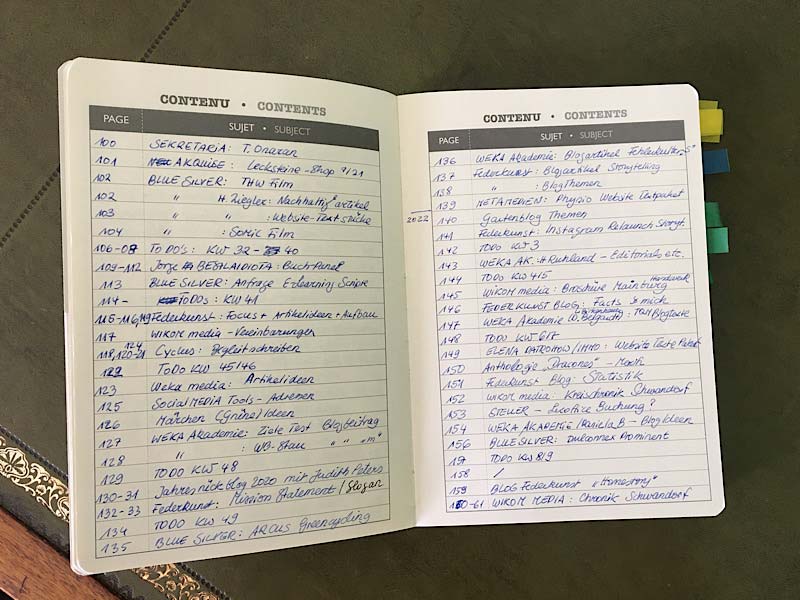 CONTENU • CONTENTS
PAGE SUJET • SUBJECT
100 SEKRETARIA: T. Onaran
101 AKQUISE: Lecksteine-Shop 9/21
102 BLUE SILVER: THW Film
102 " H. Ziegler: Nachhaltig" artikel
103 " " : Website-Textstücke
104 " : Somic Film
106-08 TO DO'S: KW 32 - 40
109-112 Jorge BESALAIDIOTA: Buch-Panel
113 BLUE SILVER: Anfrage E-Learning Scripte
114- TODOS: KW 41
115-116, 119 Federkunst: Focus + Artikelideen + Aufbau
117 WIKOM media - Vereinbarungen
118, 120-21 124 Cyclus: Begleitschreiben
122 TODO KW 45/46
123 Weka media: Artikelideen
125 Social MEDIA Tools - Adressen
126 Märchen Ideen
127 WEKA Akademie: Ziele Text Blogbeitrag
128 " : WB-Stau " " "m"
129 TODO KW 48
130-31 Jahresrückblog 2020 mit Judith Peters
132-33 Federkunst: Mission Statement / Slogan
134 TODO KW 49
135 BLUE SILVER: ARCUS Greencycling
CONTENU • CONTENTS
PAGE SUJET • SUBJECT
136 WEKA Akademie: Blogartikel
137 Federkunst: Blogartikel Storytelling
138 " : BlogThemen
139 NETAMEDIEN: Physio Website Textpaket
2022
140 Gartenblog Themen
141 Federkunst: Instagram Relaunch Storyt.
142 TODO KW 3
143 WEKA AK.: H Ruhland - Editorials etc.
144 TODO KW 4/5
145 WIKOM media: Broschüre Mainburg Handwerk
146 FEDERKUNST BLOG: Facts & mich
147 WEKA Akademie Blogtexte
148 TODO KW 6/7
149 ELENA PATROMOW/IMMO: Website Texte Paket
150 Anthologie "Dracones" -
151 Federkunst Blog: Statistik
152 WIKOM media: Kreischronik Schwandorf
153 STEUER - Buchung?
154 WEKA AKADEMIE/Mariela B - Blog Ideen
156 BLUE SILVER: Dulconnex Prominent
157 TODO KW 8/9
158 /
159 BLOG Federkunst "Homestory"
160-61 WIKOM MEDIA: Chronik Schwandorf